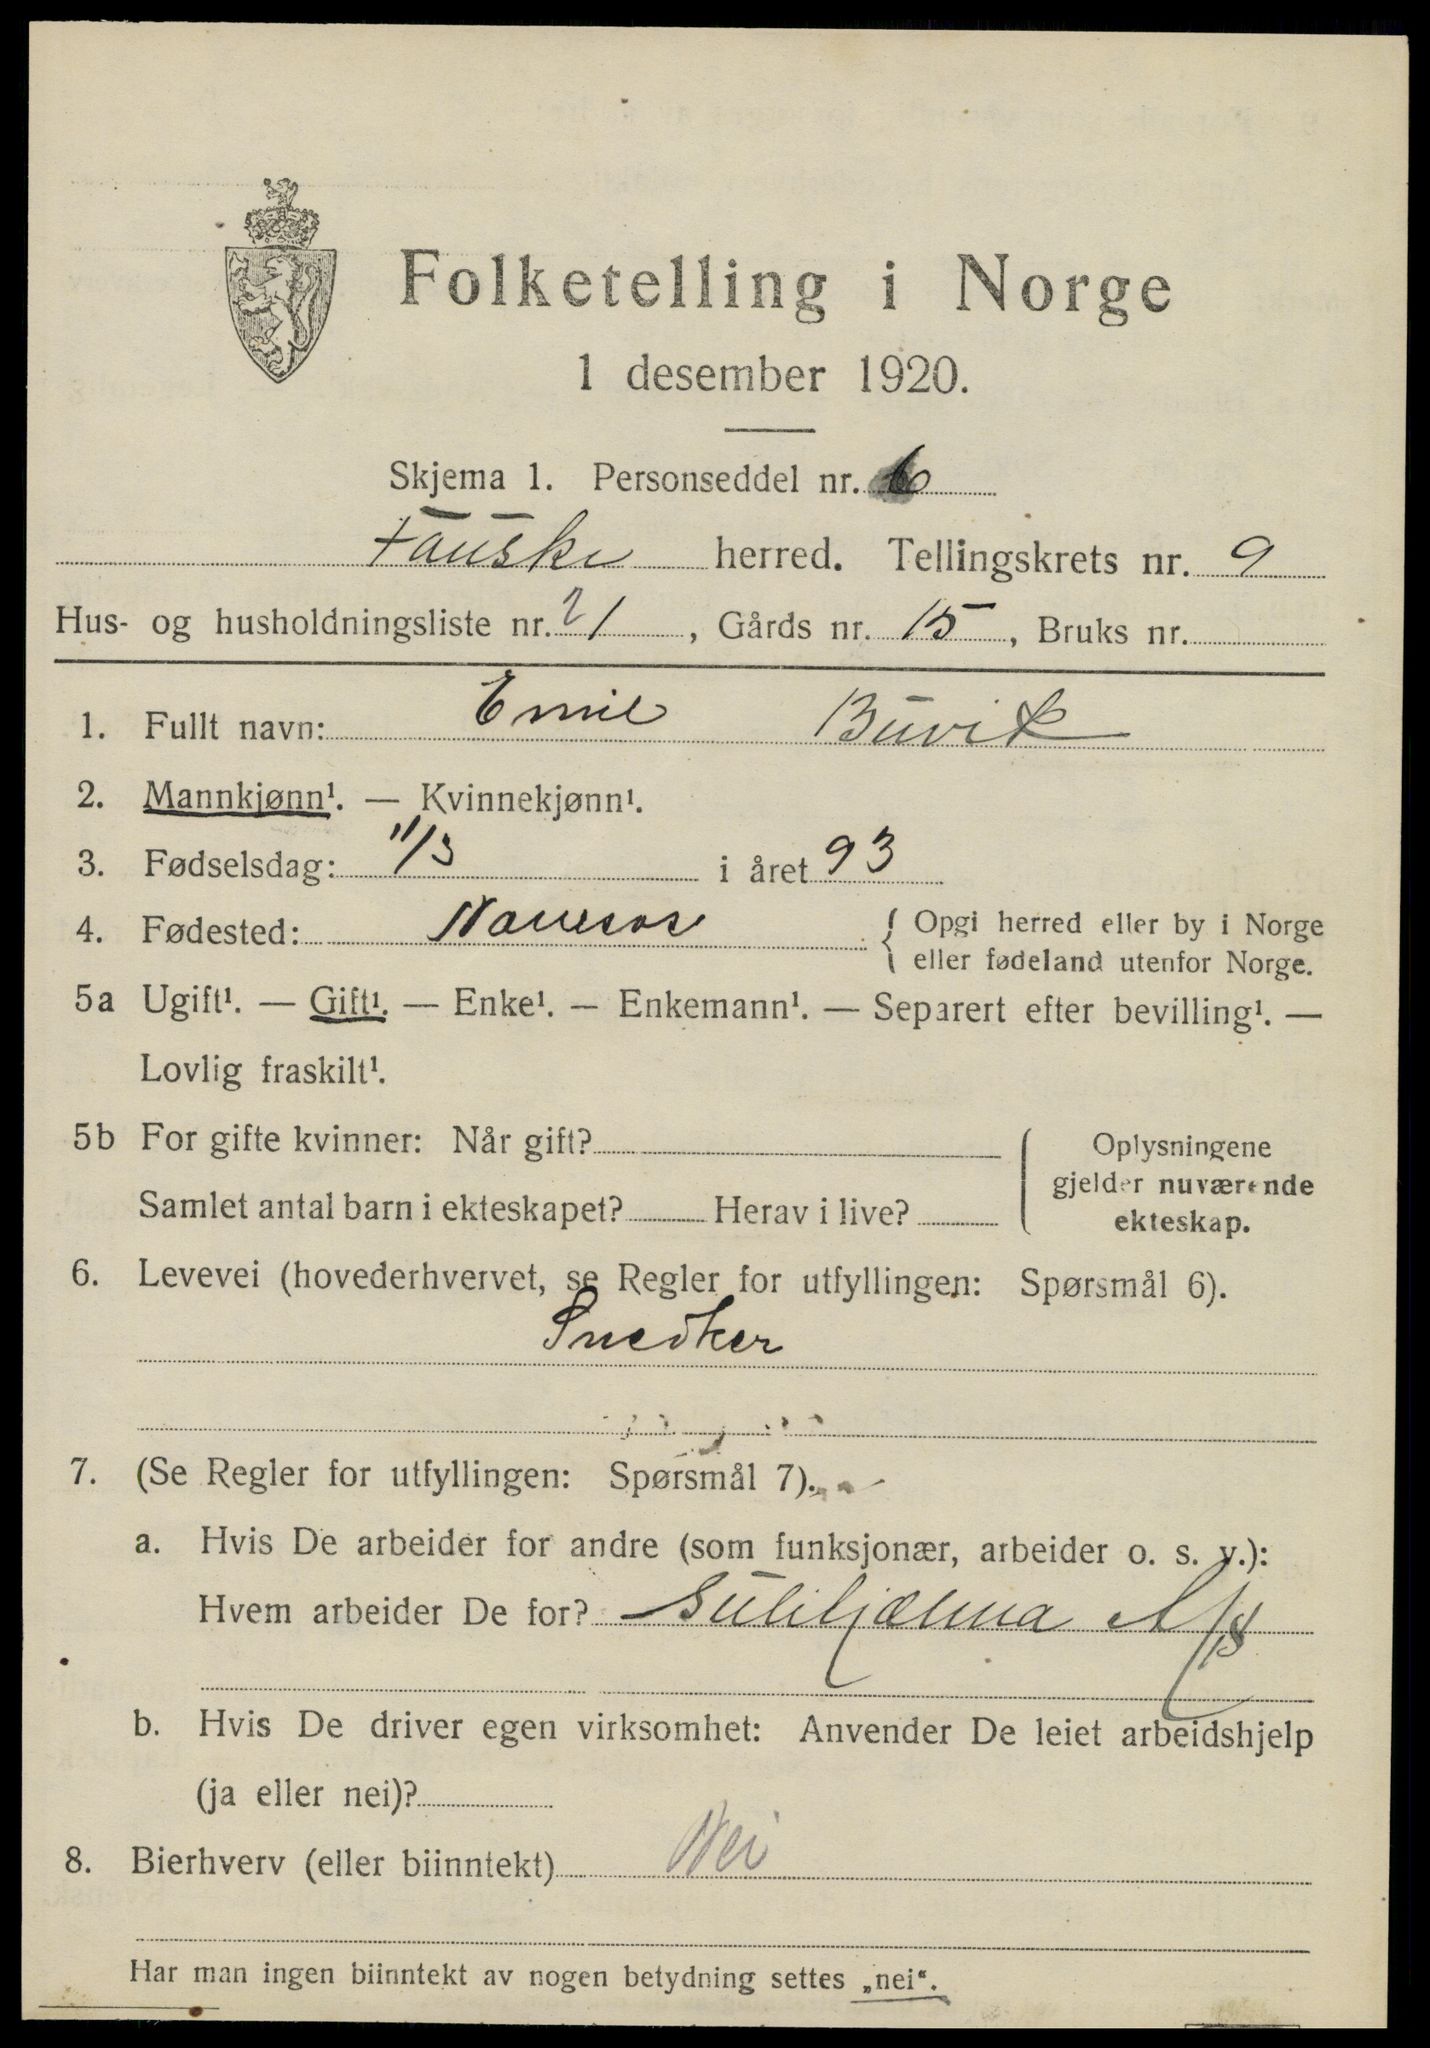 Folketelling i Norge
1 desember 1920.
Skjema 1. Personseddel nr. 6
Fauske herred. Tellingskrets nr. 9
Hus- og husholdningsliste nr. 21, Gårds nr. 15, Bruks nr.
1. Fullt navn: Emil Buvik
2. Mannkjønn¹. — Kvinnekjønn¹.
3. Fødselsdag: 11/3 i året 93
4. Fødested: { Opgi herred eller by i Norge
eller fødeland utenfor Norge.
5a Ugift¹. — Gift¹. — Enke¹. — Enkemann¹. — Separert efter bevilling¹. —
Lovlig fraskilt¹.
5b For gifte kvinner: Når gift?
Samlet antal barn i ekteskapet? Herav i live?
Oplysningene
gjelder nuværende
ekteskap.
6. Levevei (hovederhvervet, se Regler for utfyllingen: Spørsmål 6).
Snedker
7. (Se Regler for utfyllingen: Spørsmål 7).
a. Hvis De arbeider for andre (som funksjonær, arbeider o. s. v.):
Hvem arbeider De for? Sulitjelma A/S
b. Hvis De driver egen virksomhet: Anvender De leiet arbeidshjelp
(ja eller nei)?
8. Bierhverv (eller biinntekt) Nei
Har man ingen biinntekt av nogen betydning settes „nei“.